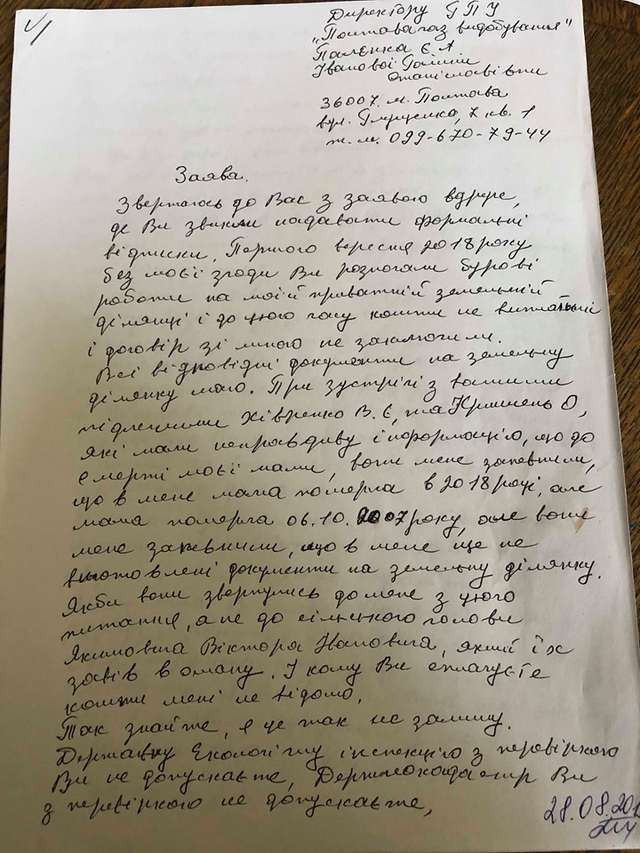 Директору ГПУ
"Полтавагазвидобування"
Палєнка Є. А
Іванової Галини
Станіславівни
36007. м. Полтава
вул. 7 кв. 1
т. м. 099-670-79-44
Заява.
Звертаюсь до Вас з заявою вдруге,
де Ви звикли надавати формальні
відписки. Першого вересня 2018 року
без моєї згоди Ви розпочали бурові
роботи на моїй приватній земельній
ділянці і до цього часу кошти не виплатили
і договір зі мною не заключили.
Всі відповідні документи на земельну
ділянку маю. При зустрічі з вашими
підлеглими Хівренко В. Є, та О,
які мали неправдиву інформацію, що до
смерті моєї мами, вони мене запевнили,
що в мене мама померла в 2018 році, але
мама померла 06. 10. 2007 року, але вони
мене запевнили, що в мене ще не
виготовлені документи на земельну ділянку.
Якби вони звернулись до мене з цього
питання, а не до сільського голови
Якимовича Віктора Івановича, який їх
завів в оману. І кому Ви сплачуєте
кошти мені не відомо.
Так знайте, я це так не залишу.
Державну Екологічну інспекцію з перевіркою
Ви не допускаєте, Держгеокадастр Ви
з перевіркою не допускаєте,
28.08.201